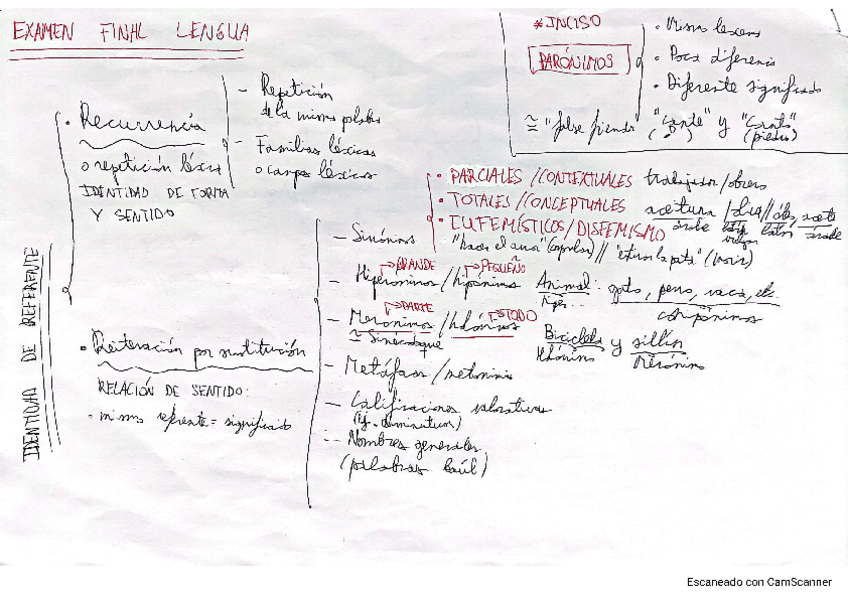 EXAMEN FINAL LENGUA
* INCISO
PARÓNIMOS
· Poca diferencia
· Diferente significado
≅ "false friends" "cante" y "canto"
(piedra)
· Recurrencia
o repetición léxica
IDENTIDAD DE FORMA
Y SENTIDO
- Repetición
de la misma palabra
- Familias léxicas
o campos léxicos
IDENTIDAD DE REFERENTE
· Reiteración por sustitución
RELACIÓN DE SENTIDO:
· mismo referente = significado
- Sinónimos
· PARCIALES / CONTEXTUALES trabajador / obrero
· TOTALES / CONCEPTUALES aceituna / oliva // óleo, aceite
árabe latín árabe
· EUFEMÍSTICOS / DISFEMISMO
"hacer el amor" (copular) // "estirar la pata" (morir)
GRANDE PEQUEÑO
- Hiperónimos / hipónimos Animal: gato, perro, vaca, etc.
cohipónimos
PARTE TODO
- Merónimos / holónimos Bicicleta y sillín
≅ Sinécdoque Holónimo Merónimo
- Metáforas / metonimia
- Calificaciones valorativas
(ej. diminutivos)
- Nombres generales
(palabras baúl)
Escaneado con CamScanner